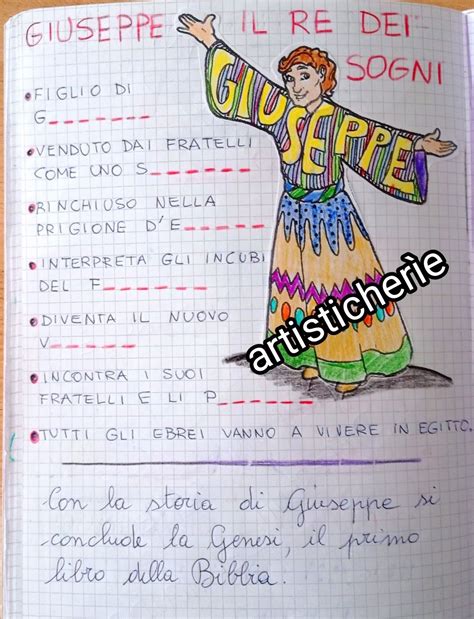 GIUSEPPE IL RE DEI
SOGNI
GIUSEPPE
•FIGLIO DI
G_______
•VENDUTO DAI FRATELLI
COME UNO S_______
•RINCHIUSO NELLA
PRIGIONE D'E_______
•INTERPRETA GLI INCUBI
DEL F_______
•DIVENTA IL NUOVO
V_______
•INCONTRA I SUOI
FRATELLI E LI P_______
•TUTTI GLI EBREI VANNO A VIVERE IN EGITTO.
artisticherìe
Con la storia di Giuseppe si
conclude la Genesi, il primo
libro della Bibbia.